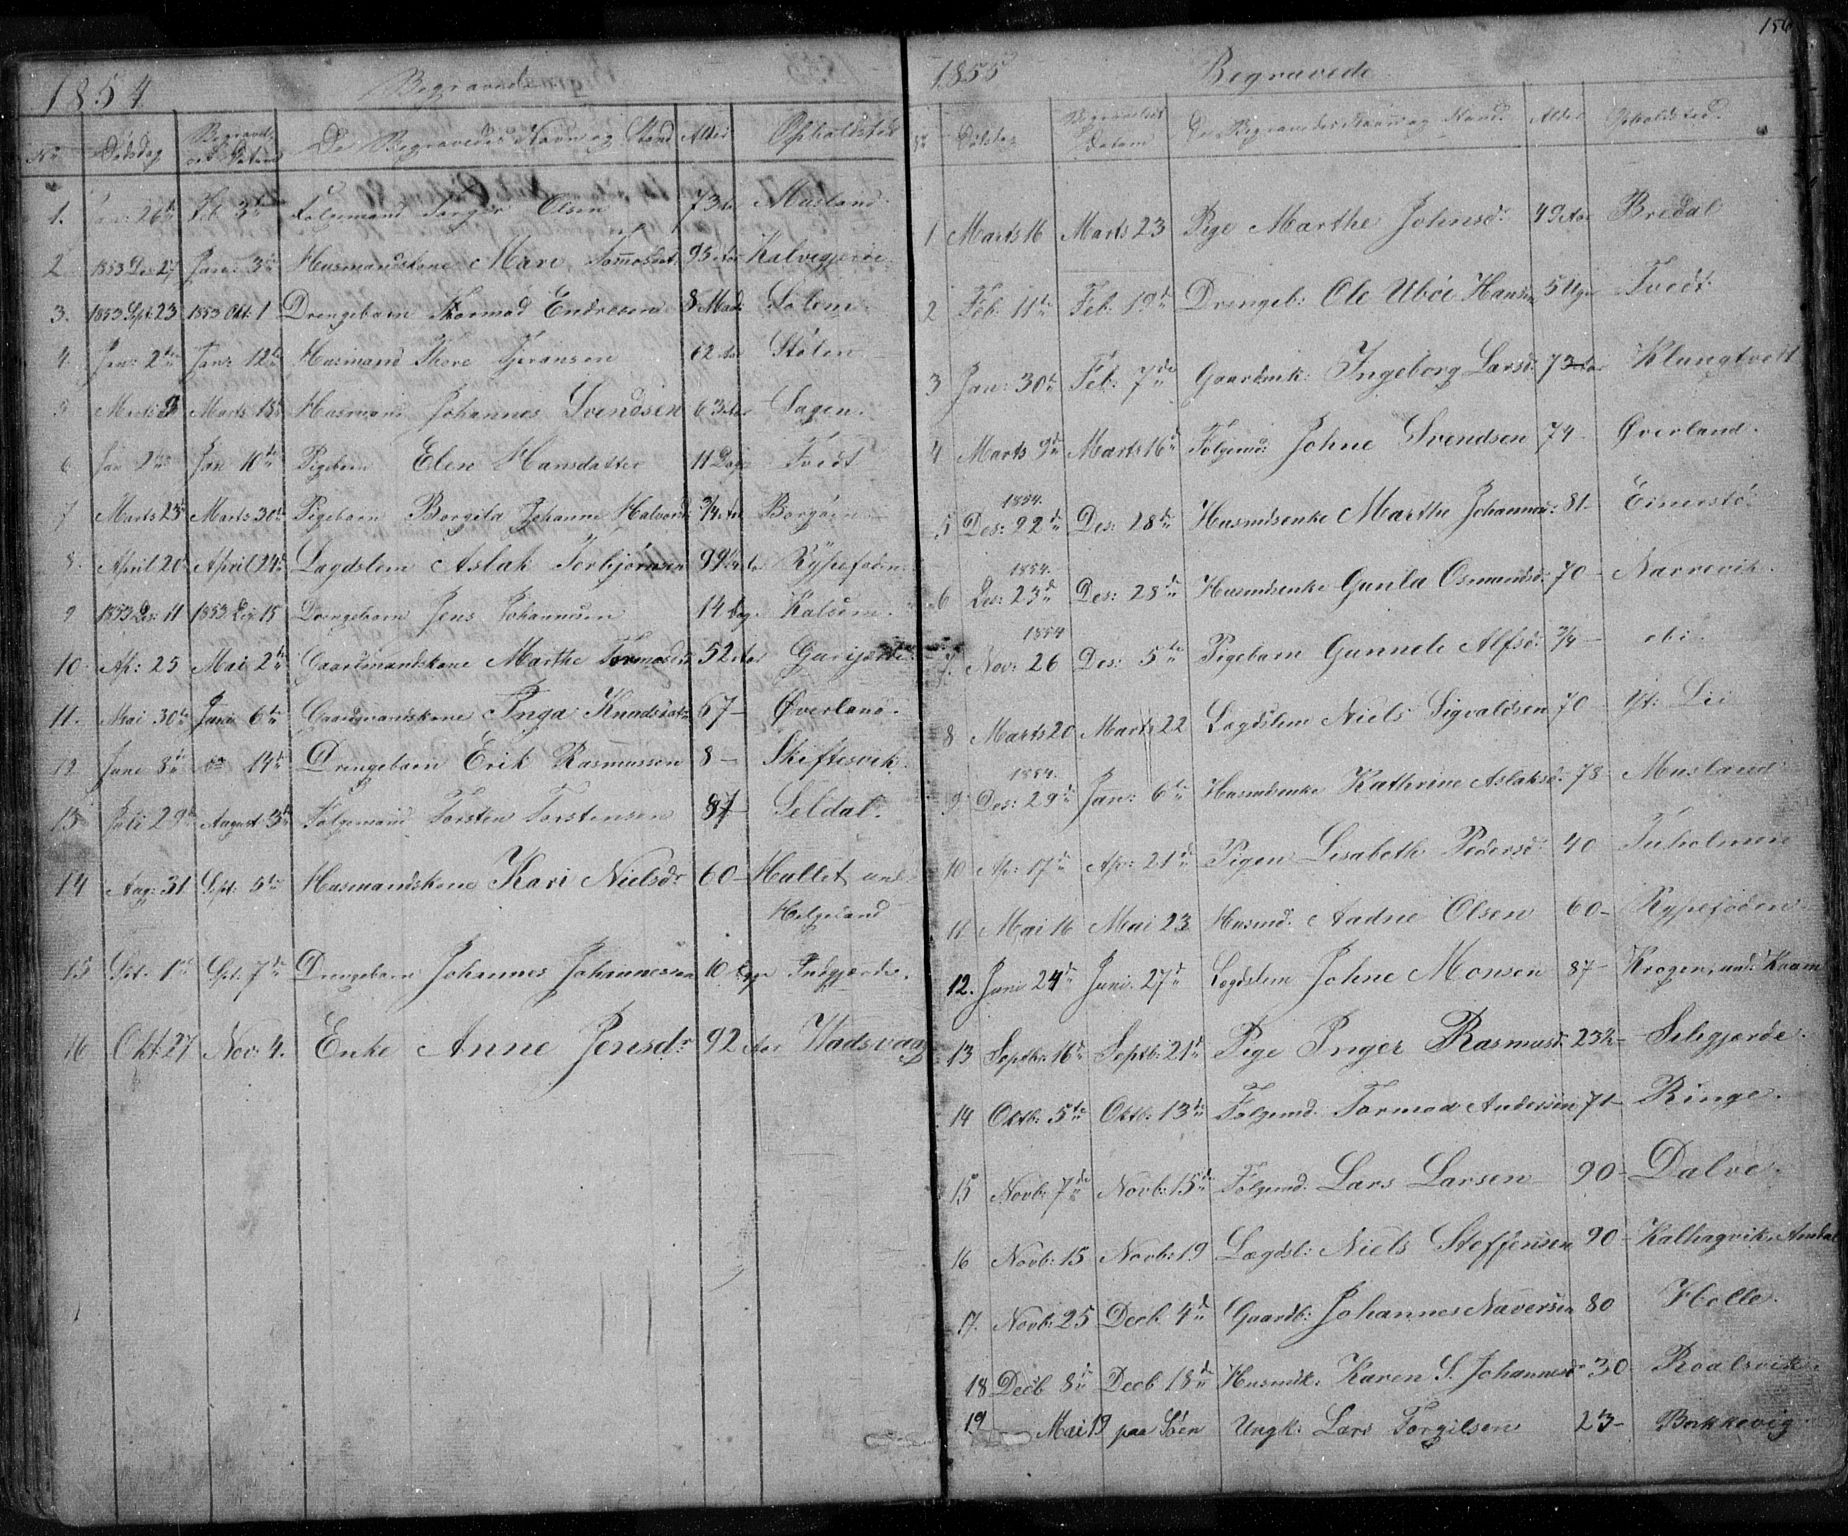 1854 Begravede
No Dødsdag Begravelses Datum De Begravedes Navn og Stand Alder Opholdsted
1. Jan: 26de Feb. 3de Folgemand Torger Olsen 73 Aar Musland
2 1853 Des 27 Jan: 3de Husmandskone Mari 95 Aar Kalvegjerde
3. 1853 Spt: 23 1853 Okt. 1 Drengebarn Thormod Endresen 8 Md. Solem
4. Jan: 2de Jan: 12te Husmand Thore Tjeransen 62 Aar Stølen
5 Marts Marts 15de Husmand Johannes Svendsen 63 Aar Sagen.
6 Jan 2de Jan 10de Pigebarn Elen Hansdatter 11 Dage Tvedt
7 Marts 23 Marts 30te Pigebarn Borgila Johanne Halvorsd 3/4 Aar Borgøen
8. April 20 April 24de Lægdslem Aslak Torbjørnsen 99 Aar Rypefoden
9 1853 Des: 11 1853 Des 15 Drengebarn Jens Johannesen 14 Dag. Kalsem.
10. Ap: 25 Mai 2de Gaardmandskone Marthe Tormodsd 52 Aar
11. Mai 30te Juni 6te Gaardmandskone Inga Knudsdatr 67 — Øverland.
12 Juni 8de do 14de Drengebarn Erik Rasmussen 8 — Skiftesvik.
13 Juli 29de August 3de Folgemand Torsten Torstensen 87 — Seldal.
14 Aug: 31 Spt: 5te Husmandskone Kari Nielsdr 60 — Hallet und
Helgeland
15 Spt. 1ste Spt. 7de Drengebarn Johannes Johannessen 10 Dage Indgjerde.
16 Okt. 27 Nov: 4. Enke Anne Jensdr 92 Aar Vadsvaag
156
1855 Begravede
No Dødsdag Begravelses Datum De Begravedes Navn og Stand Alder Opholdsted.
1 Marts 16 Marts 23 Pige Marthe Johnsdr 49 Aar Bredal
2 Feb: 11te Feb: 19de Drengeb: Ole Ubøe Hansen 5 Uger Tvedt
3 Jan: 30te Feb: 7de Gaardmk: Ingeborg Larsd: 73 Aar Klungtvedt
4 Marts 9de Marts 16de Folgemd: Johne Svendsen 74 - Øverland.
1854.
5 Des: 22de Des: 28de Husmdsenke Marthe Johannesd: 81 - Einerstø
1854.
6 Des: 23de Des: 28de Husmdsenke Gunla Osmundsd: 70 - Narrevik.
1854
7. Nov: 26 Des: 5te Pigebarn Gunnele Alfsd: 3/4 — ibi.
8 Marts 20 Marts 22 Lægdslem Niels Sigvaldsen 70 - Yt: Lei
1854.
9 Des: 29de Jan: 6te Husmdsenke Kathrine Aslaksd: 78 - Musland
10 Ap: 17de Ap: 21de Pigen Lisabeth Pedersdr 40 Tuholmen
11 Mai 16 Mai 23 Husmd: Aadne Olsen 60 - Rypefoden.
12. Juni 24de Juni 27de Lægdslem Johne Monsen 87 - Krogen, und: Kaam
13 Septb: 16de Septb: 21de Pige Inger Rasmusd: 23½ - Seligjærde.
14 Oktb: 5te Oktb: 13de Folgemd: Tormod Andersen 71 - Ringe.
15 Novb: 7de Novb: 15de Folgemd: Lars Larsen 90 - Dalve.
16 Novb: 15 Novb: 19 Lægdsl: Niels Steffensen 90 -
17. Novb: 25 Decb. 4de Gaardb: Johannes Naversen 80 Helle
18 Decb 8de Decb 18de Husmdk: Karen S. Johannesdr 30 - Roalsvik.
19 Mai 19 paa Søen Ungk: Lars Torgilsen 23 - Bakkevig